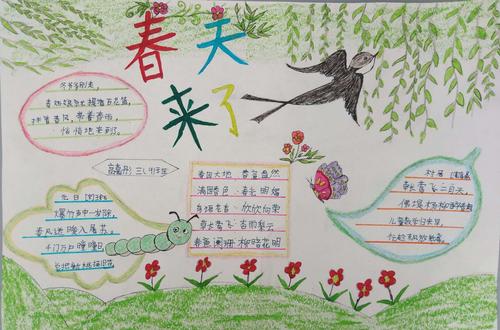 春天
来了
冬爷爷刚走，
春姑娘就提着百花篮，
拂着春风，带着春雨，
悄悄地来到。
三(4)班
春回大地 春意盎然
满园春色 春光明媚
百花齐放 欣欣向荣
春意阑珊 柳暗花明
元日
爆竹声中一岁除，
春风送暖入屠苏，
千门万户曈曈日，
总把新桃换旧符。
村居
草长莺飞二月天，
拂堤杨柳醉春烟
儿童散学归来早，
忙趁东风放纸鸢。